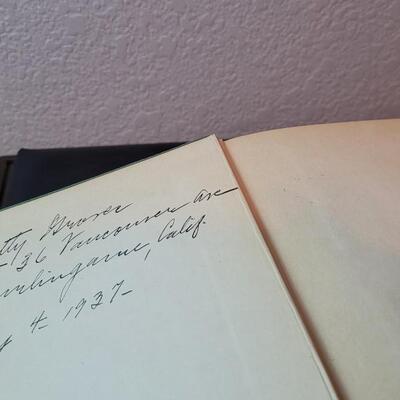 tty Grover
-36 Vancouver Ave
urlingame, Calif.
4-1937-